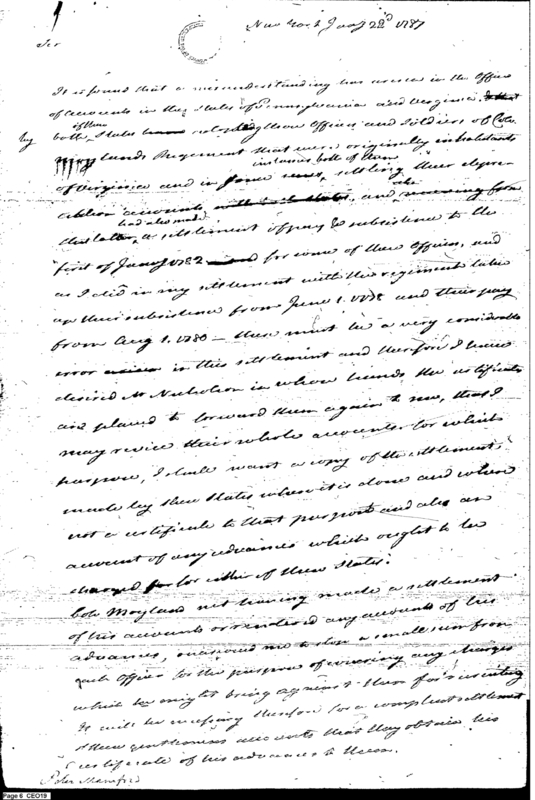 New York Jany 22d 1787
Sir
It is found that a misunderstanding has arisen in the Offices
of Accounts in the States of Pennsylvania and Virginia
by both of these States regarding those Officers and Soldiers of Colo.
lands Regiment that were originally inhabitants
of Virginia and in some instances both of them settling their depre-
ciation accounts, and
had also made a settlement of pay & subsistence to the
first of Jany 1782 for some of these Officers, and
as I did in my settlement with the regiment take
up their subsistence from June 1. 1778 and their pay
from Aug 1. 1780 — there must be a very considerable
error in this settlement and therefore I have
desired Mr Nicholson in whose hands the certificates
are placed to forward them again to me, that I
may revise their whole accounts for which
purpose, I shall want a copy of the settlement
made by those States where it is done and where
not a certificate to that purport and also an
account of any advances which ought to be
charged for either of these States.
Colo Moyland not having made a settlement
of his accounts or rendered any accounts of his
advances, occasioned me to stop a small sum from
each Officer for the purpose of covering any charges
which he might bring against them for recruiting
It will be necessary therefore for a complete settlement
of these gentlemens accounts that they obtain his
certificate of his advances to them.
Page 6 CEO19